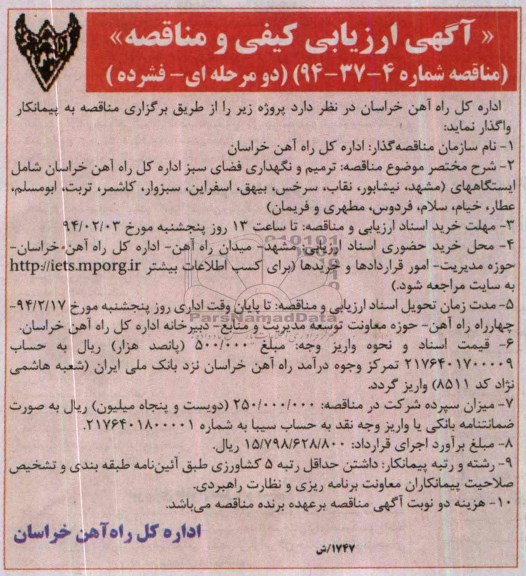 « آگهی ارزیابی کیفی و مناقصه»
(مناقصه شماره ۴-۳۷-۹۴) (دو مرحله ای- فشرده )
اداره کل راه آهن خراسان در نظر دارد پروژه زیر را از طریق برگزاری مناقصه به پیمانکار
واگذار نماید:
۱- نام سازمان مناقصه‌گذار: اداره کل راه آهن خراسان
۲- شرح مختصر موضوع مناقصه: ترمیم و نگهداری فضای سبز اداره کل راه آهن خراسان شامل
ایستگاههای (مشهد، نیشابور، نقاب، سرخس، بیهق، اسفراین، سبزوار، کاشمر، تربت، ابومسلم،
عطار، خیام، سلام، فردوس، مطهری و فریمان)
۳- مهلت خرید اسناد ارزیابی و مناقصه: تا ساعت ۱۳ روز پنجشنبه مورخ ۹۴/۰۲/۰۳
۴- محل خرید حضوری اسناد ارزیابی: مشهد- میدان راه آهن- اداره کل راه آهن خراسان-
حوزه مدیریت- امور قراردادها و خریدها (برای کسب اطلاعات بیشتر http://iets.mporg.ir
به سایت مراجعه شود.)
۵- مدت زمان تحویل اسناد ارزیابی و مناقصه: تا پایان وقت اداری روز پنجشنبه مورخ ۹۴/۲/۱۷-
چهارراه راه آهن- حوزه معاونت توسعه مدیریت و منابع- دبیرخانه اداره کل راه آهن خراسان.
ParsNamadData
۶- قیمت اسناد و نحوه واریز وجه: مبلغ ۵۰۰/۰۰۰ (پانصد هزار) ریال به حساب
۲۱۷۶۴۰۱۷۰۰۰۰۹ تمرکز وجوه درآمد راه آهن خراسان نزد بانک ملی ایران (شعبه هاشمی
نژاد کد ۸۵۱۱) واریز گردد.
۷- میزان سپرده شرکت در مناقصه: ۲۵۰/۰۰۰/۰۰۰ (دویست و پنجاه میلیون) ریال به صورت
ضمانتنامه بانکی یا واریز وجه نقد به حساب سیبا به شماره ۲۱۷۶۴۰۱۸۰۰۰۰۱.
۸- مبلغ برآورد اجرای قرارداد: ۱۵/۷۹۸/۶۲۸/۸۰۰ ریال.
۹- رشته و رتبه پیمانکار: داشتن حداقل رتبه ۵ کشاورزی طبق آئین‌نامه طبقه بندی و تشخیص
صلاحیت پیمانکاران معاونت برنامه ریزی و نظارت راهبردی.
۱۰- هزینه دو نوبت آگهی مناقصه برعهده برنده مناقصه می‌باشد.
اداره کل راه‌آهن خراسان
۱۷۴۷/ش